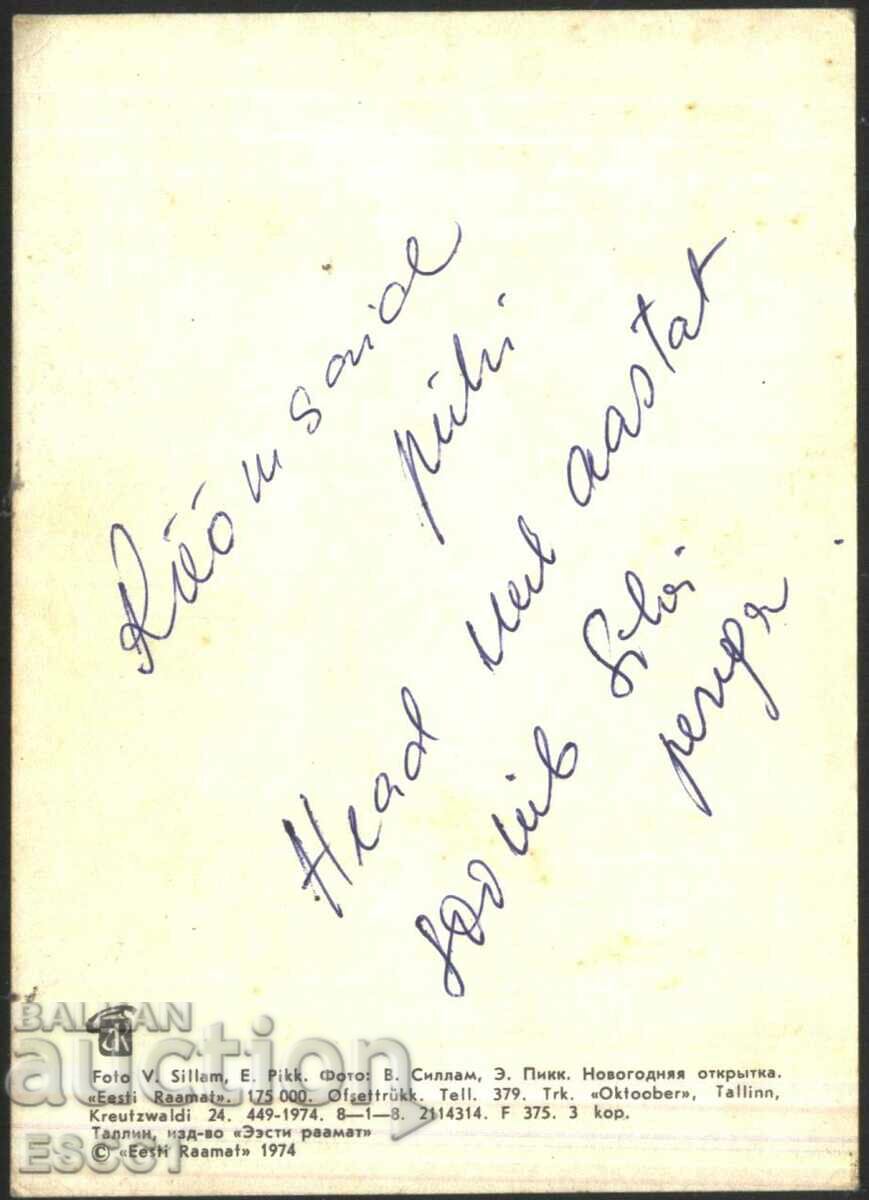 Rõõmsaid
pühi
Head uut aastat
soovib Silvi
perega
BALKAN
auction
Foto V. Sillam, E. Pikk. Фото: В. Силлам, Э. Пикк. Новогодняя открытка.
«Eesti Raamat». 175 000. Ofsettrükk. Tell. 379. Trk. «Oktoober», Tallinn,
Kreutzwaldi 24. 449-1974. 8—1—8. 2114314. F 375. 3 kop.
Таллин, изд-во «Ээсти раамат»
© «Eesti Raamat» 1974